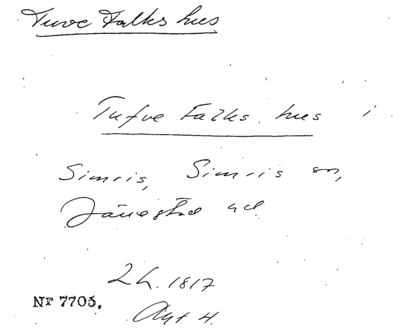 Tuve Falks hus
Tufve Falks hus i
Simris, Simris sn,
Järrestad hd
2 L. 1817
Nr 7705.
Avt H.